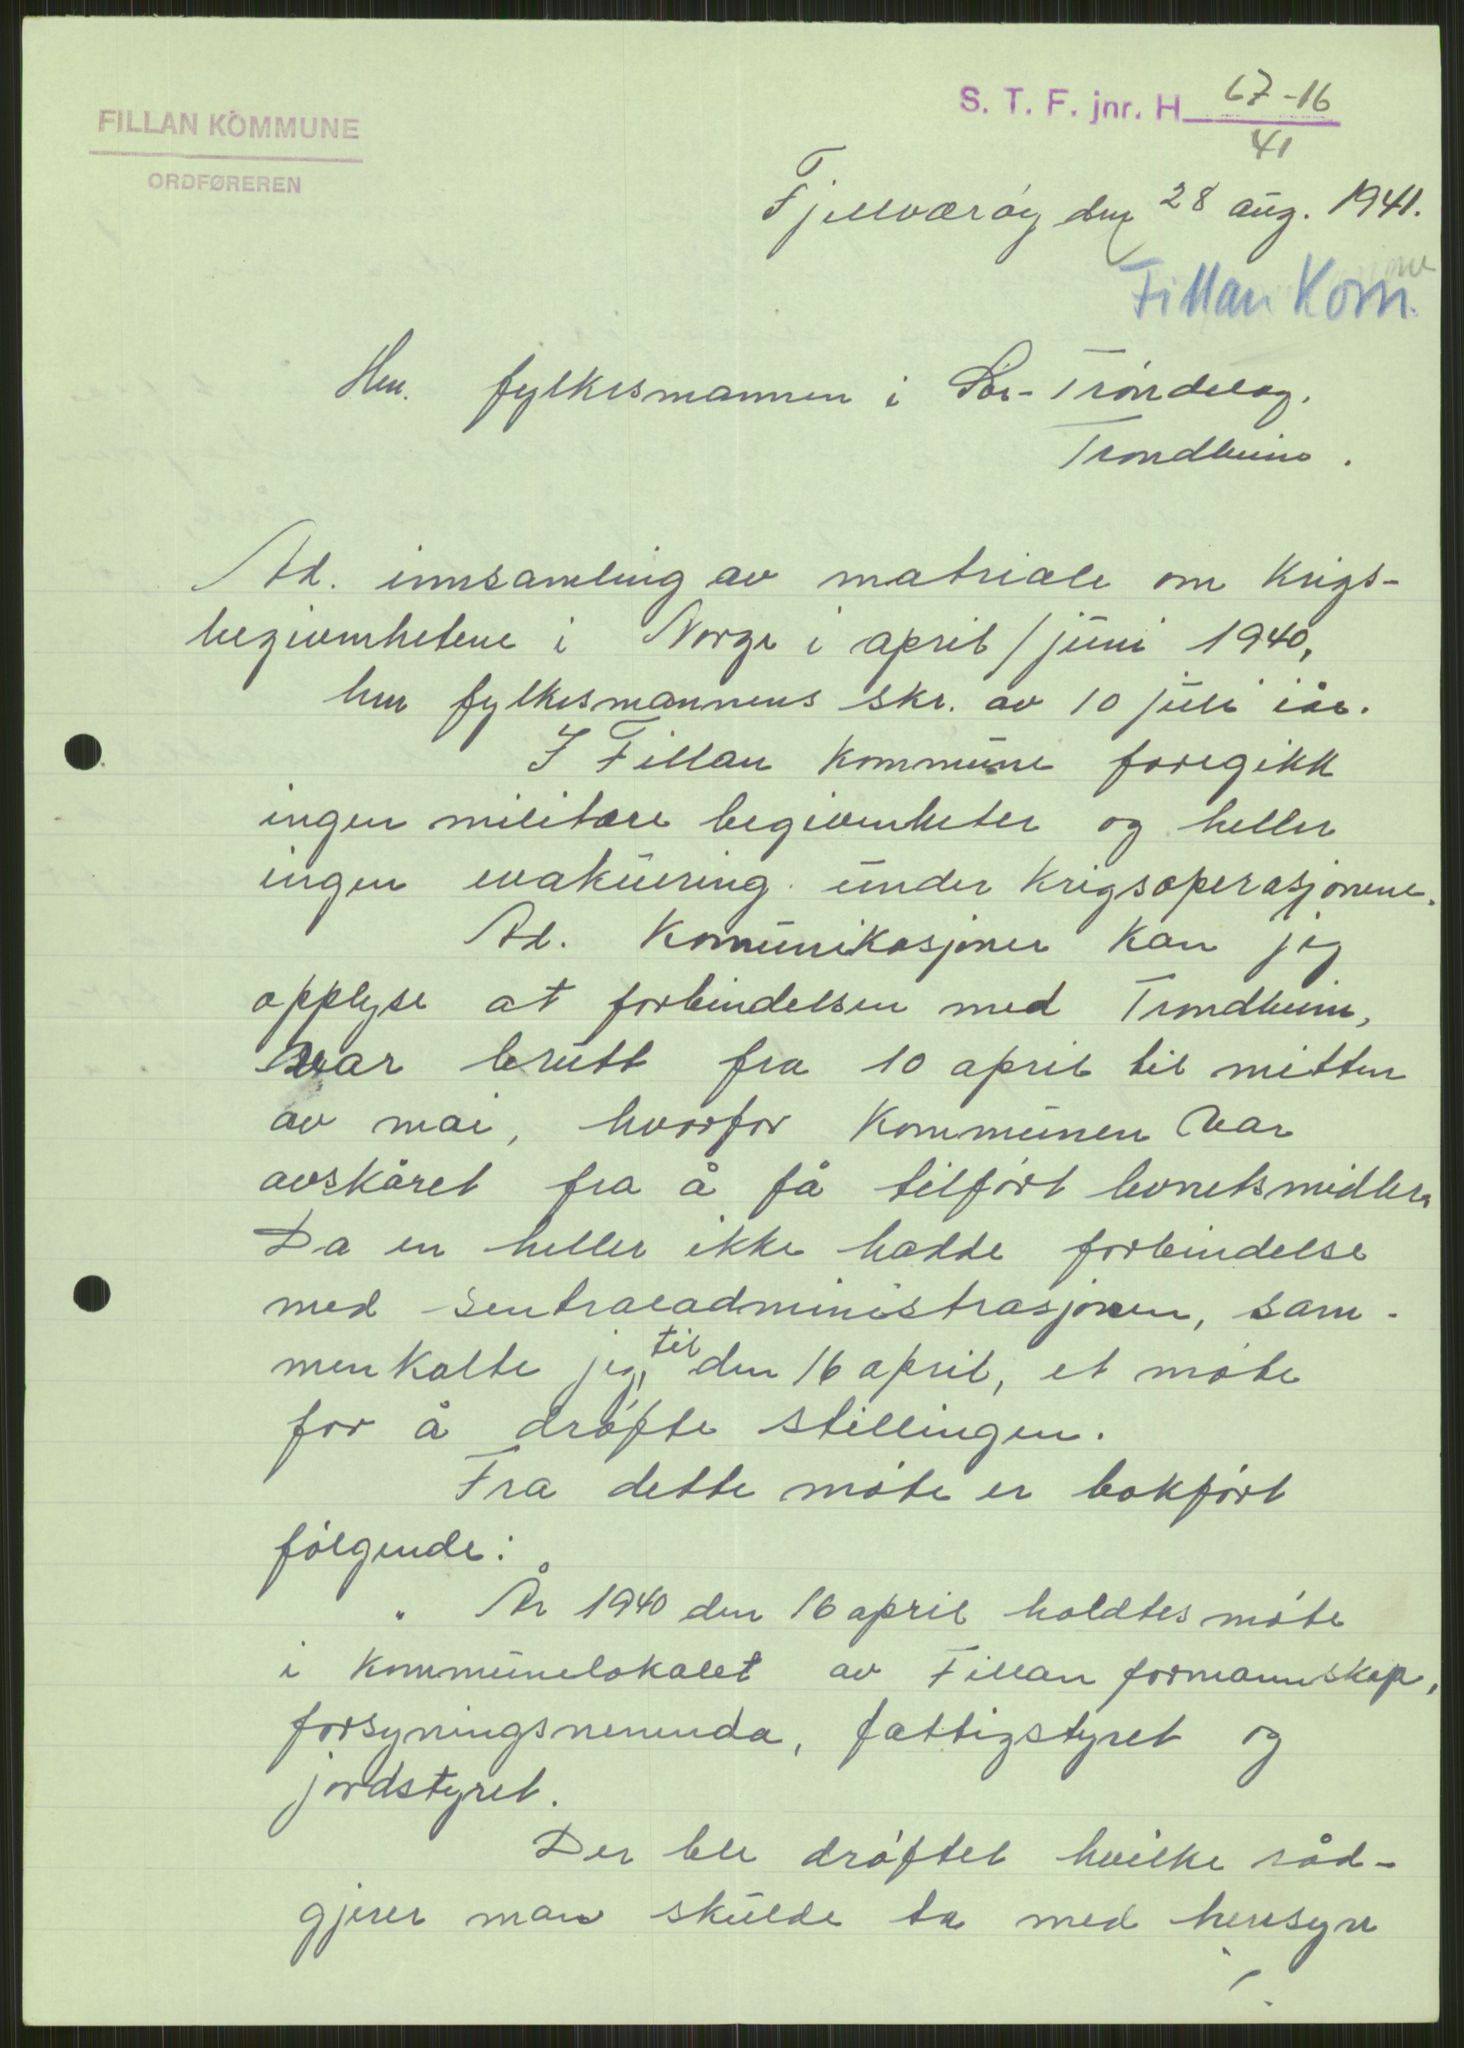 FILLAN KOMMUNE
ORDFØREREN
S. T. F. jnr. H 67-16
41
Fjellværøy den 28 aug. 1941.
Fillan Kom.
Herr fylkesmannen i Sør-Trøndelag.
Trondheim.
Ad. innsamling av matriale om krigs-
begivenhetene i Norge i april/juni 1940,
herr fylkesmannens skr. av 10 juli iår.
I Fillan kommune foregikk
ingen militære begivenheter og heller
ingen evakuering under krigsoperasjonene.
Ad. Komunikasjoner kan jeg
opplyse at forbindelsen med Trondheim,
var brutt fra 10 april til mitten
av mai, hvorfor kommunen var
avskåret fra å få tilført levnetsmidler.
Da en heller ikke hadde forbindelse
med sentraladministrasjonen, sam-
menkalte jeg, til den 16 april, et møte
for å drøfte stillingen.
Fra dette møte er bokført
følgende:
" År 1940 den 16 april holdtes møte
i kommunelokalet av Fillan formannskap,
forsyningsnemnda, fattigstyret og
jordstyret.
Der ble drøftet hvilke råd-
gjerer man skulde ta med hensyn